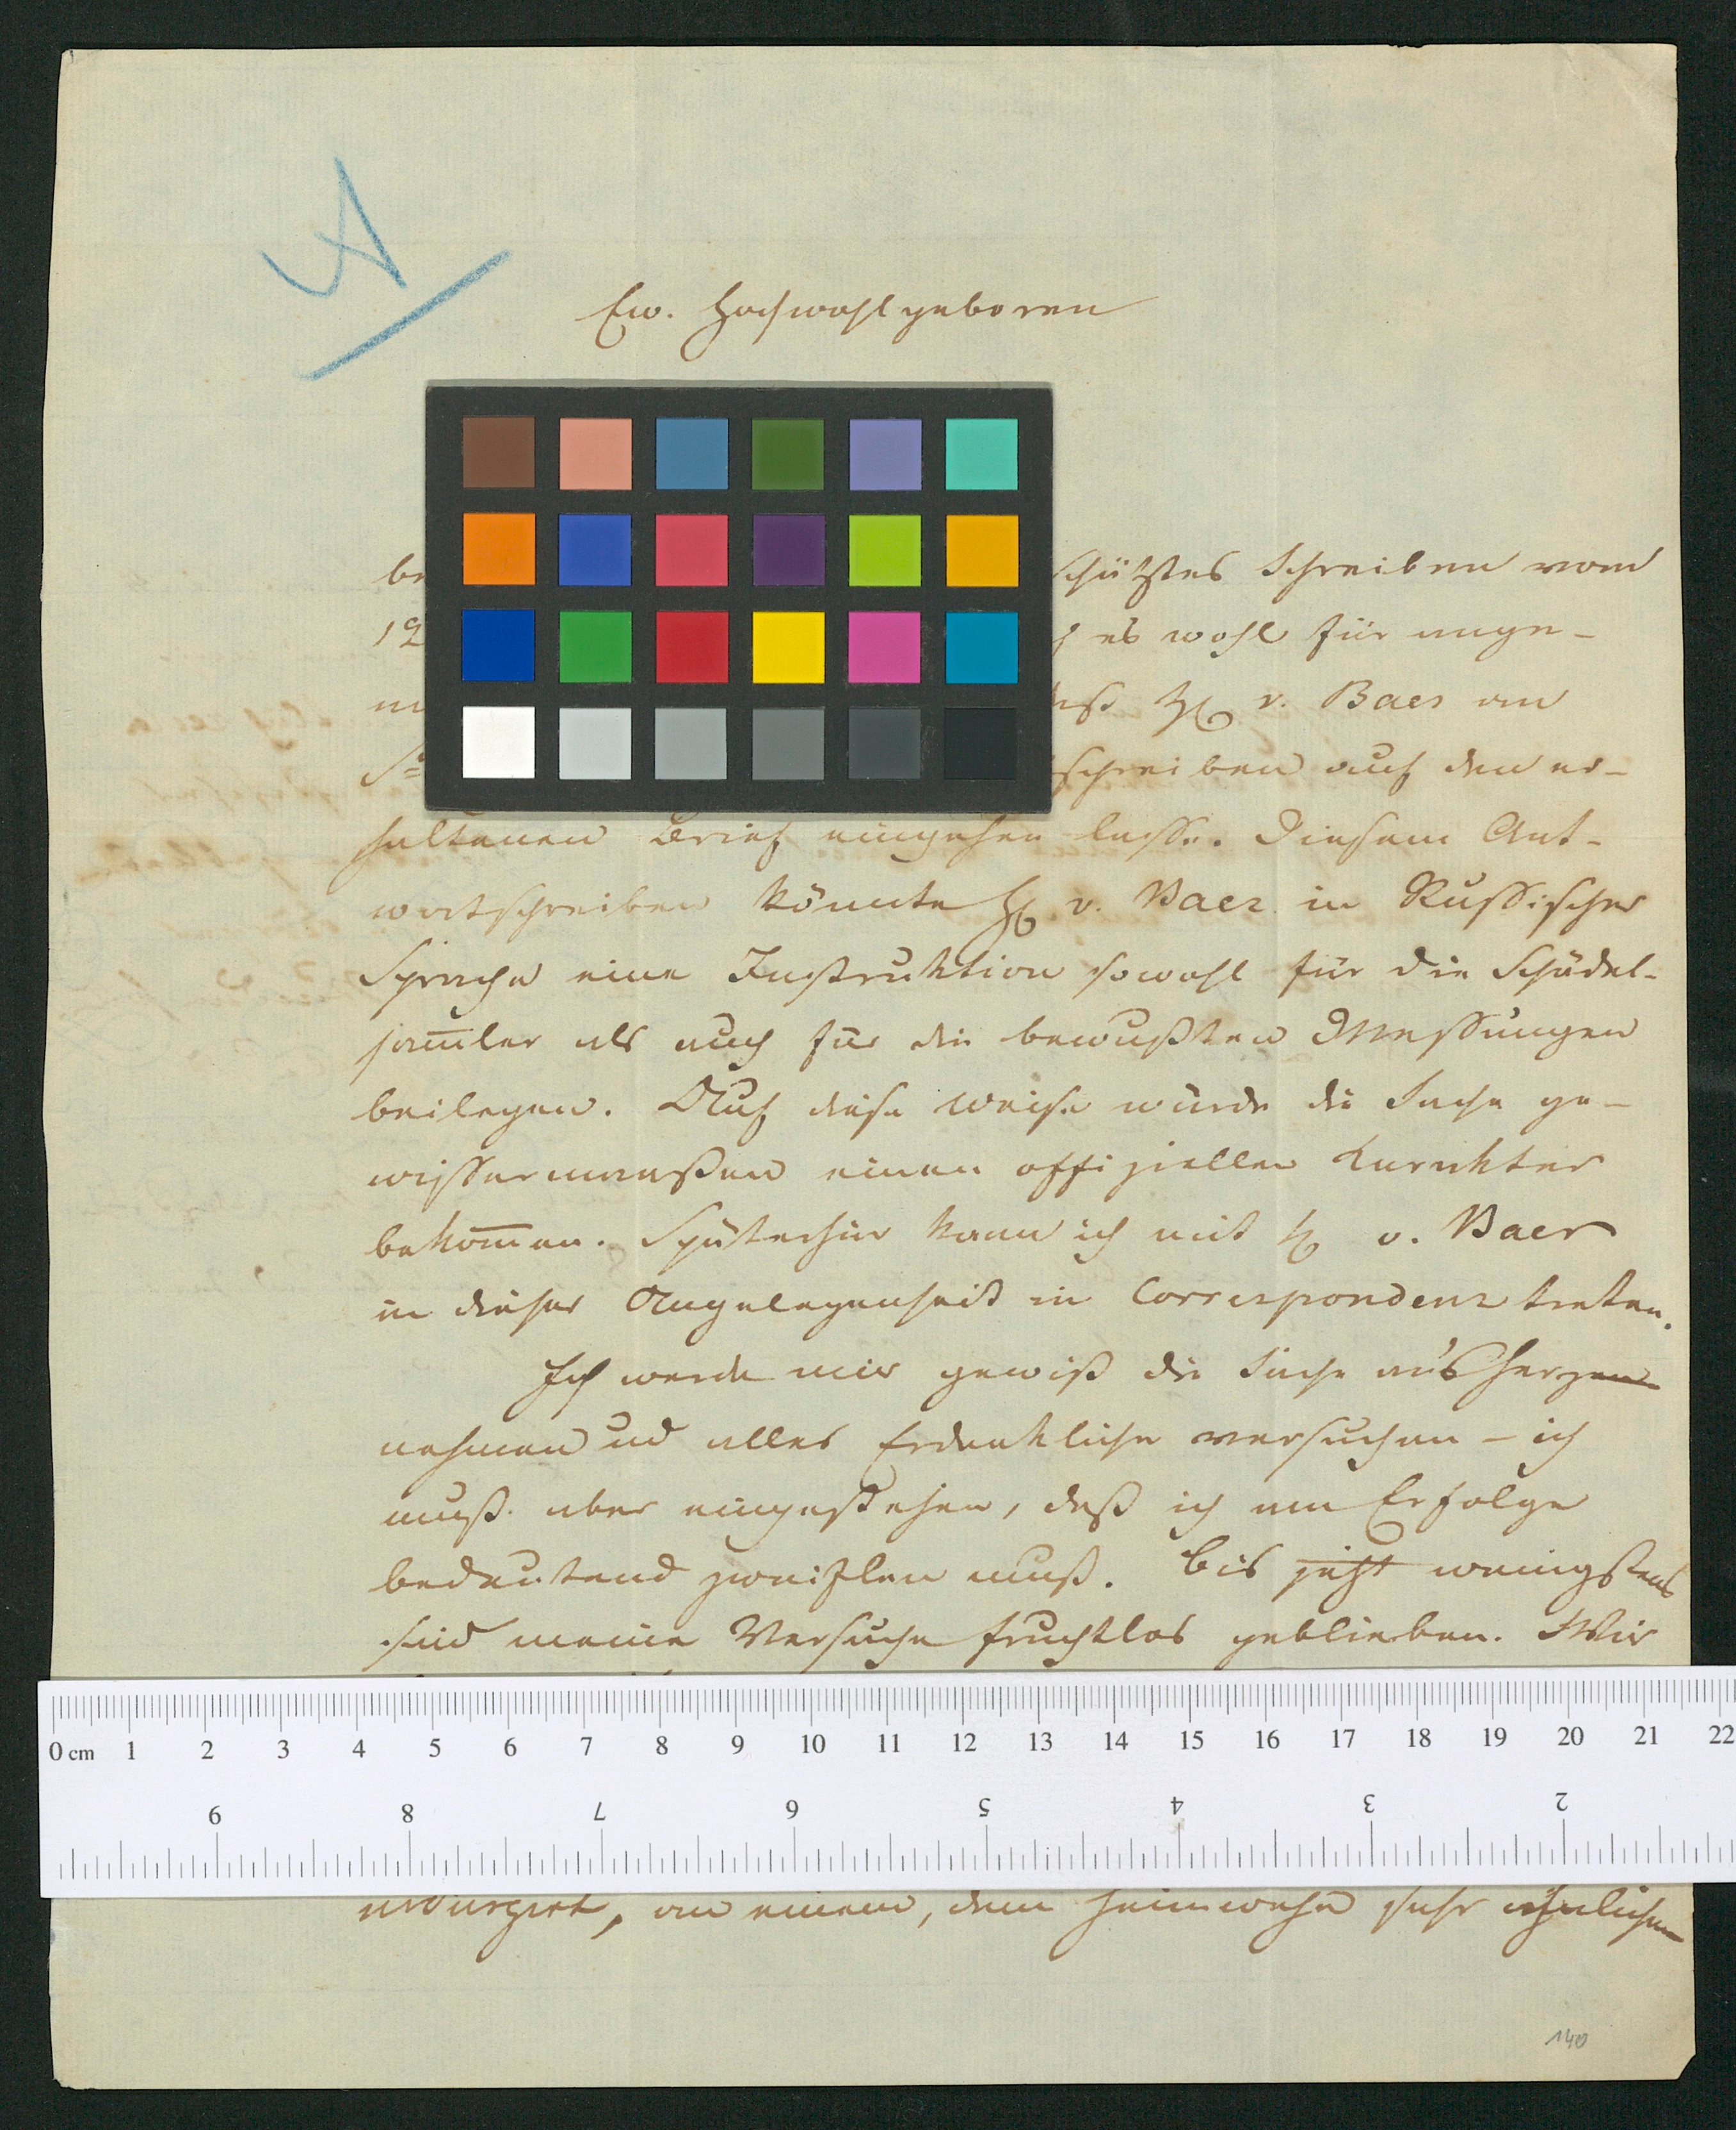 Ew. Hochwohlgeboren
schätztes Schreiben vom
es wohl für ange-
v. Baer an
schreiben auf den er-
haltenen Brief eingehen lasse. Diesem Ant-
wortschreiben könnte H v. Baer in Russischer
Sprache eine Instruktion sowohl für die Schädel-
sam̄ler als auch für die bewußten Messungen
beilegen. Auf diese Weise würde die Sache ge-
wissermaaßen einen offiziellen Karakter
bekom̄en. Späterhin kann ich mit H v. Baer
in dieser Angelegenheit in Correspondenz treten.
Ich werde mir gewiß die Sache an's Herz
nehmen und alles Erdenkliche versuchen – ich
muß aber eingestehen, daß ich am Erfolge
bedeutend zweiflen muß. Bis jetzt wenigstens
sind meine Versuche fruchtlos geblieben. Wir
0 cm 1 2 3 4 5 6 7 8 9 10 11 12 13 14 15 16 17 18 19 20 21 22
9 8 7 6 5 4 3 2
an einem, dem Heimwehe sehr ähnlichen
140